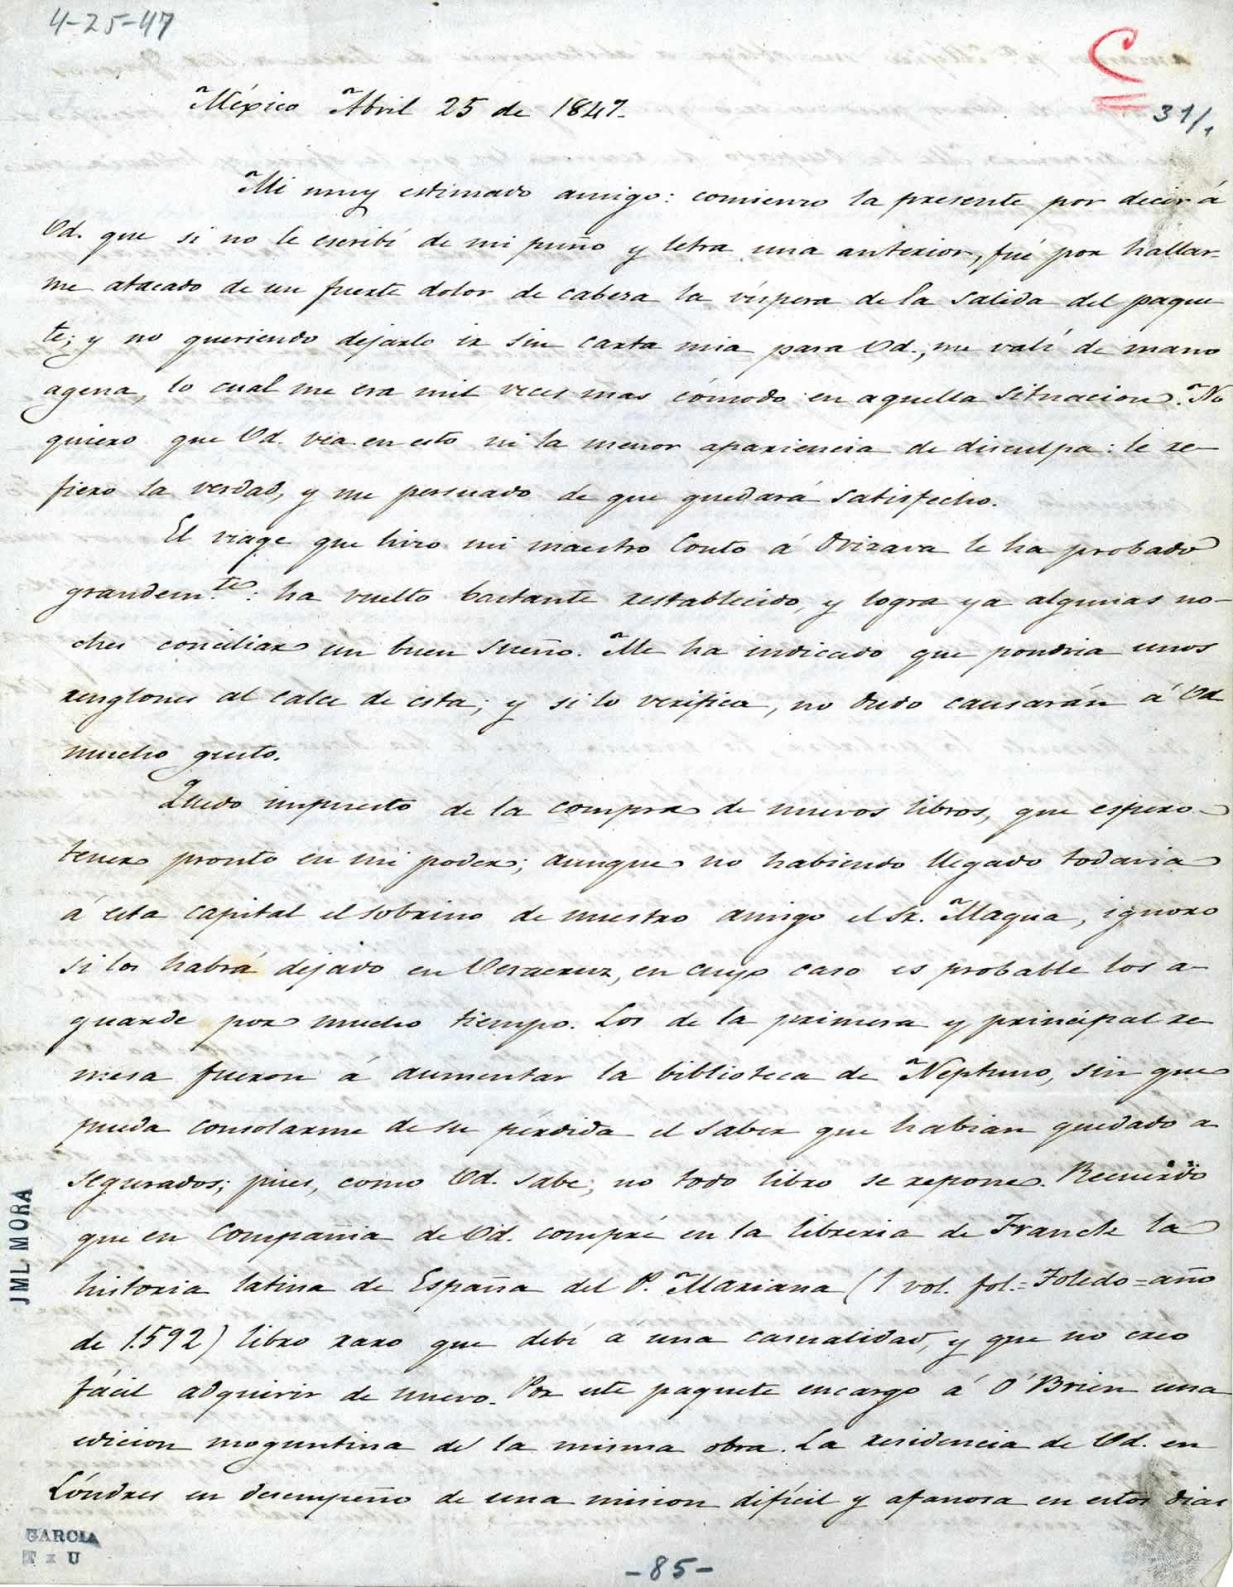 4-25-47
C
31/.
México Abril 25 de 1847.
Mi muy estimado amigo: comienzo la presente por decir á
Vd. que si no le escribí de mi puño y letra una anterior, fué por hallar-
me atacado de un fuerte dolor de cabeza la víspera de la salida del paque
te; y no queriendo dejarlo ir sin carta mia para Vd., me valí de mano
agena, lo cual me era mil veces mas cómodo en aquella situacion. No
quiero que Vd. vea en esto ni la menor apariencia de disculpa: le re-
fiero la verdad, y me persuado de que quedará satisfecho.
El viage que hizo mi maestro Couto á Orizava le ha probado
grandem.te: ha vuelto bastante restablecido, y logra ya algunas no-
ches conciliar un buen sueño. Me ha indicado que pondria unos
renglones al calce de esta; y si lo verifica, no dudo causarán á Vd
mucho gusto.
Quedo impuesto de la compra de nuevos libros, que espero
tener pronto en mi poder; aunque no habiendo llegado todavia
á esta capital el sobrino de nuestro amigo el Sr. Maqua, ignoro
si los habrá dejado en Veracruz, en cuyo caso es probable los a-
guarde por mucho tiempo. Los de la primera y principal re
mesa fueron á aumentar la biblioteca de Neptuno, sin que
pueda consolarme de su pérdida el saber que habian quedado a-
segurados; pues, como Vd. sabe, no todo libro se repone. Recuerdo
que en compañia de Vd. compré en la libreria de Franck la
historia latina de España del P. Mariana (1 vol. fol.=Toledo=año
de 1592) libro raro que debí á una casualidad, y que no creo
fácil adquirir de nuevo. Por este paquete encargo á O'Brien una
edicion moguntina de la misma obra. La residencia de Vd. en
Lóndres en desempeño de una mision difícil y afanosa en estos dias
JML MORA
GARCIA
T x U
-85-